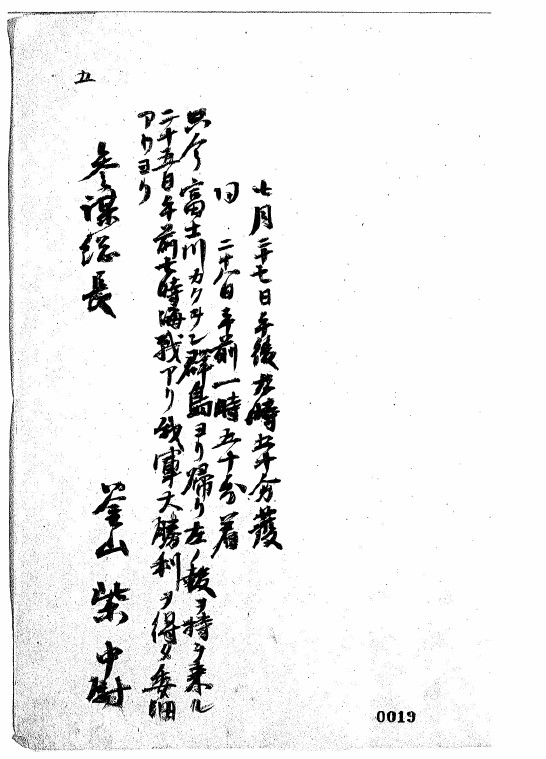 七月二十七日午後 時五十分發
同 二十八日午前一時五十分着
只今富士川 群島ヨリ帰リ左ノ報ヲ持チ来ル
二十五日午前七時海戰アリ我軍大勝利ヲ得タ委細
アトヨリ
釜山 柴中尉
參謀総長
五
0019